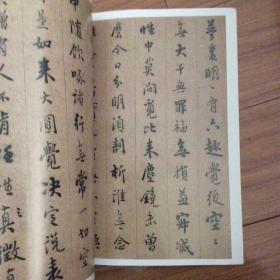 夢裏明〻有六趣覺後空〻
無大千無罪福無損益寂滅
性中莫問覓比來塵鏡未曾
磨今日分明須剖析誰無念
中隨飲啄諸行無常一切空
是如來大圓覺決定說表
有人不肯任真徵